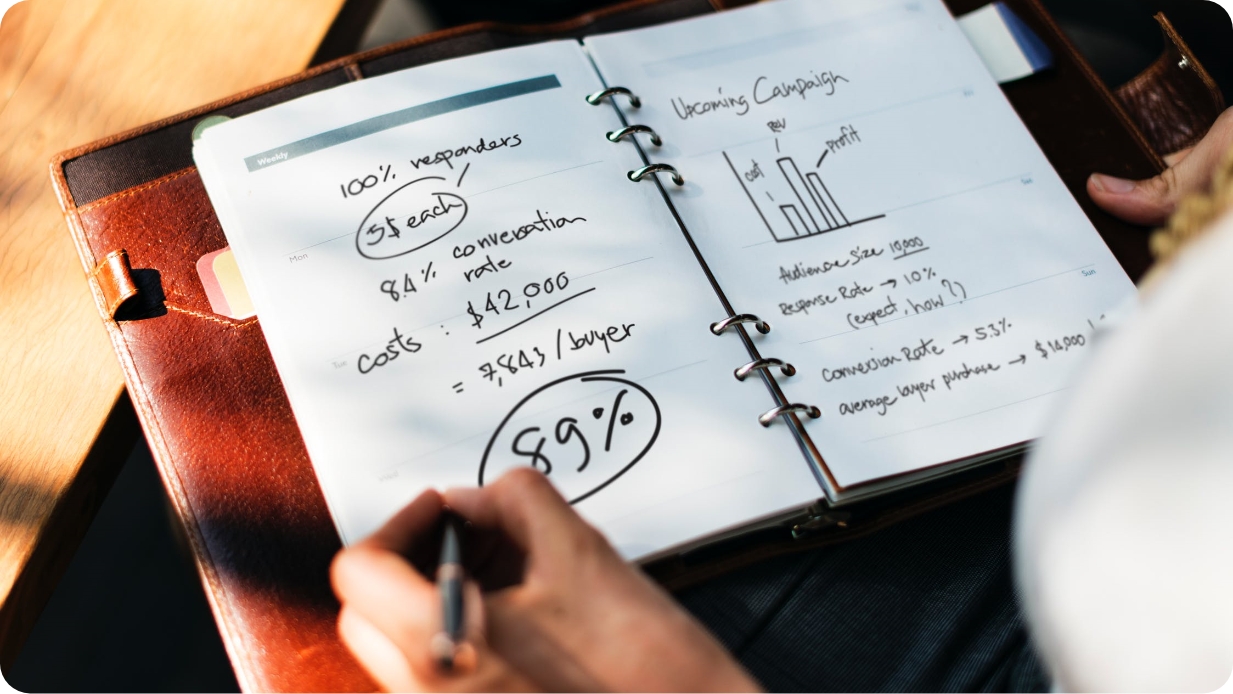 Weekly
100% responders
5$ each
Mon
8.4% conversation
rate
costs : $42,000
= 7,843 / buyer
89%
Upcoming Campaign
cost
Rev
profit
Audience Size 10,000
Response Rate → 10%
(expect, how?)
Sun
Conversion Rate → 5.3%
average buyer purchase → $14,000